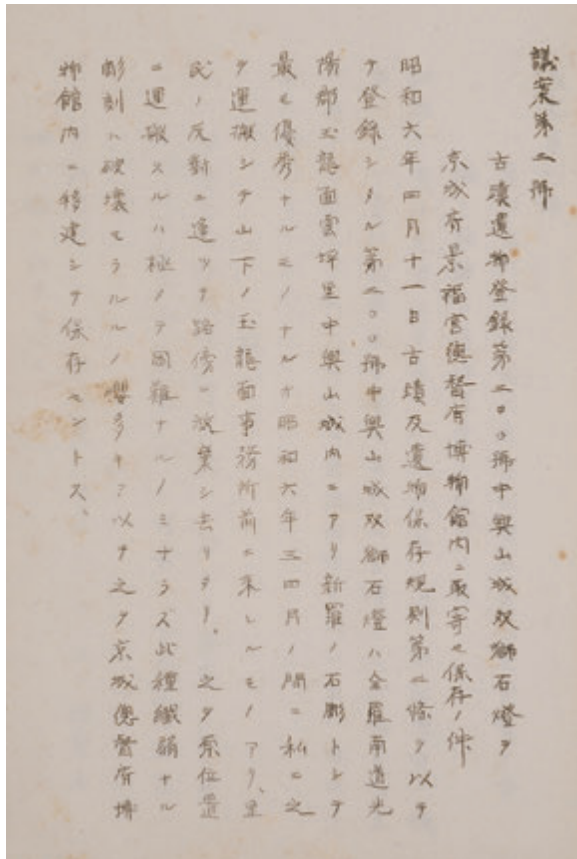 議案第二號
古墳遺物登錄第二〇〇號中興山城双獅石燈ヲ
京城府景福宮總督府博物館內ニ取寄セ保存ノ件
昭和六年四月十一日古墳及遺物保存規則第二條ヲ以テ
ヲ登錄シタル第二〇〇號中興山城双獅石燈ハ全羅南道光
陽郡玉龍面雲坪里中興山城內ニアリ新羅ノ石彫トシテ
最モ優秀ナルモノナルガ昭和六年三四月ノ間ニ私ニ之
ヲ運搬シテ山下ノ玉龍面事務所前ニ來レルモノアリ、里
民ノ反對ニ逢ツテ路傍ニ放棄シ去リタリ。之ヲ原位置
ニ運搬スルハ極メテ困難ナルノミナラズ此種纖弱ナル
彫刻ハ破壞セラルルノ懼多キヲ以テ之ヲ京城總督府博
物館內ニ移建シテ保存セントス、